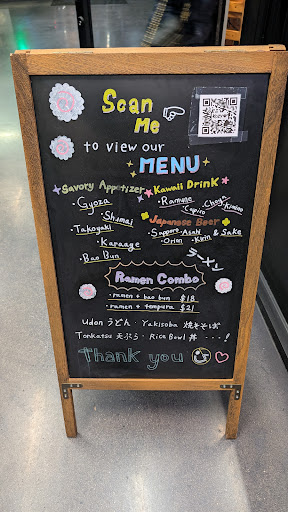 Scan
Me
to view our
MENU
Savory Appetizer
· Gyoza
· Shumai
· Takoyaki
· Karaage
· Bao Bun
Kawaii Drink
· Ramune
· Calpico
Japanese Beer
· Sapporo · Asahi
· Orion · Kirin & Sake
ラーメン
Ramen Combo
· ramen + bao bun $18
· ramen + tempura $21
Udon うどん · Yakisoba 焼きそば
Tonkatsu 天ぷら · Rice Bowl 丼 ···!
Thank you